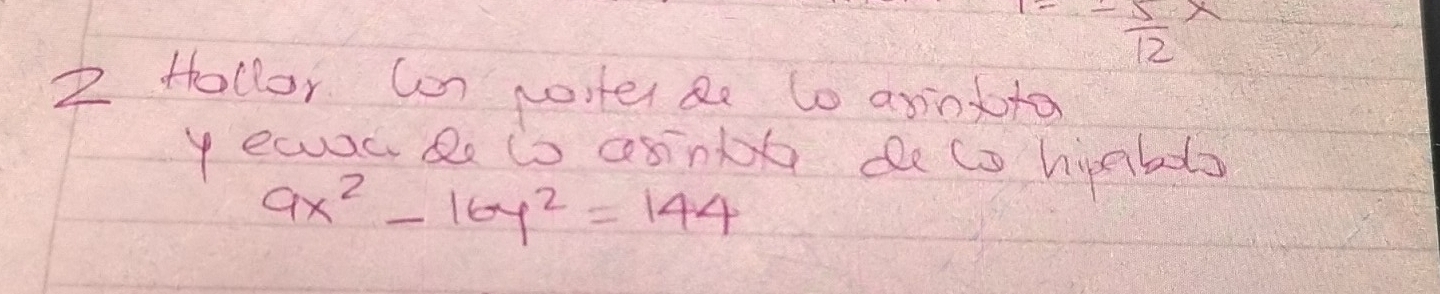 - 5/12 x
2 Hallar las partes de la asintota
y ecuac de la asintota de la hiperbola
9x² - 16y² = 144